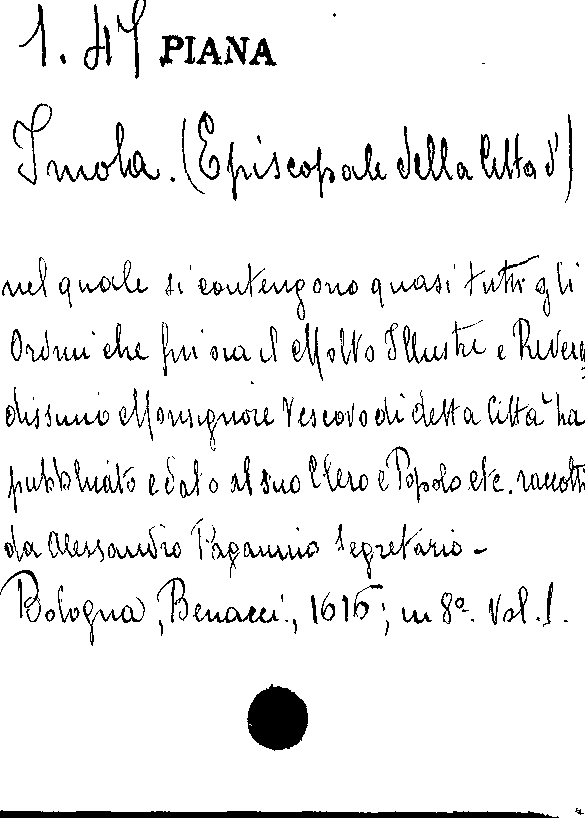 1. 47 PIANA
Imola. (Episcopale della Città d')
nel quale si contengono quasi tutti gli
Ordini che fin ora il Molto Illustre e Reveren
dissimo Monsignore Vescovo di detta Città ha
pubblicato e dato al suo Clero e Popolo etc. raccolti
da Alessandro Paganino Segretario -
Bologna, Benacci, 1616; in 8º. Vol. 1.